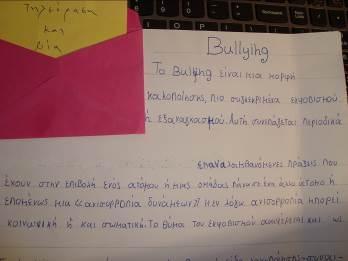 Τηλεόραση
και
βία
Bullying
Το Bullying είναι μια μορφή
κακοποίησης, πιο συγκεκριμένα εκφοβισμού
ή εξαναγκασμού. Αυτή συνήθεται περιοδικά
επαναλαμβανόμενες πράξεις που
έχουν στην επιβολή ενός ατόμου ή μιας ομάδας πάνω σε ένα άλλο άτομο ή
επομένως μια «ανισορροπία δυνάμεων». Η εν λόγω ανισορροπία μπορεί
κοινωνική ή και σωματική. Το θύμα του εκφοβισμού αναφέρεται και ως